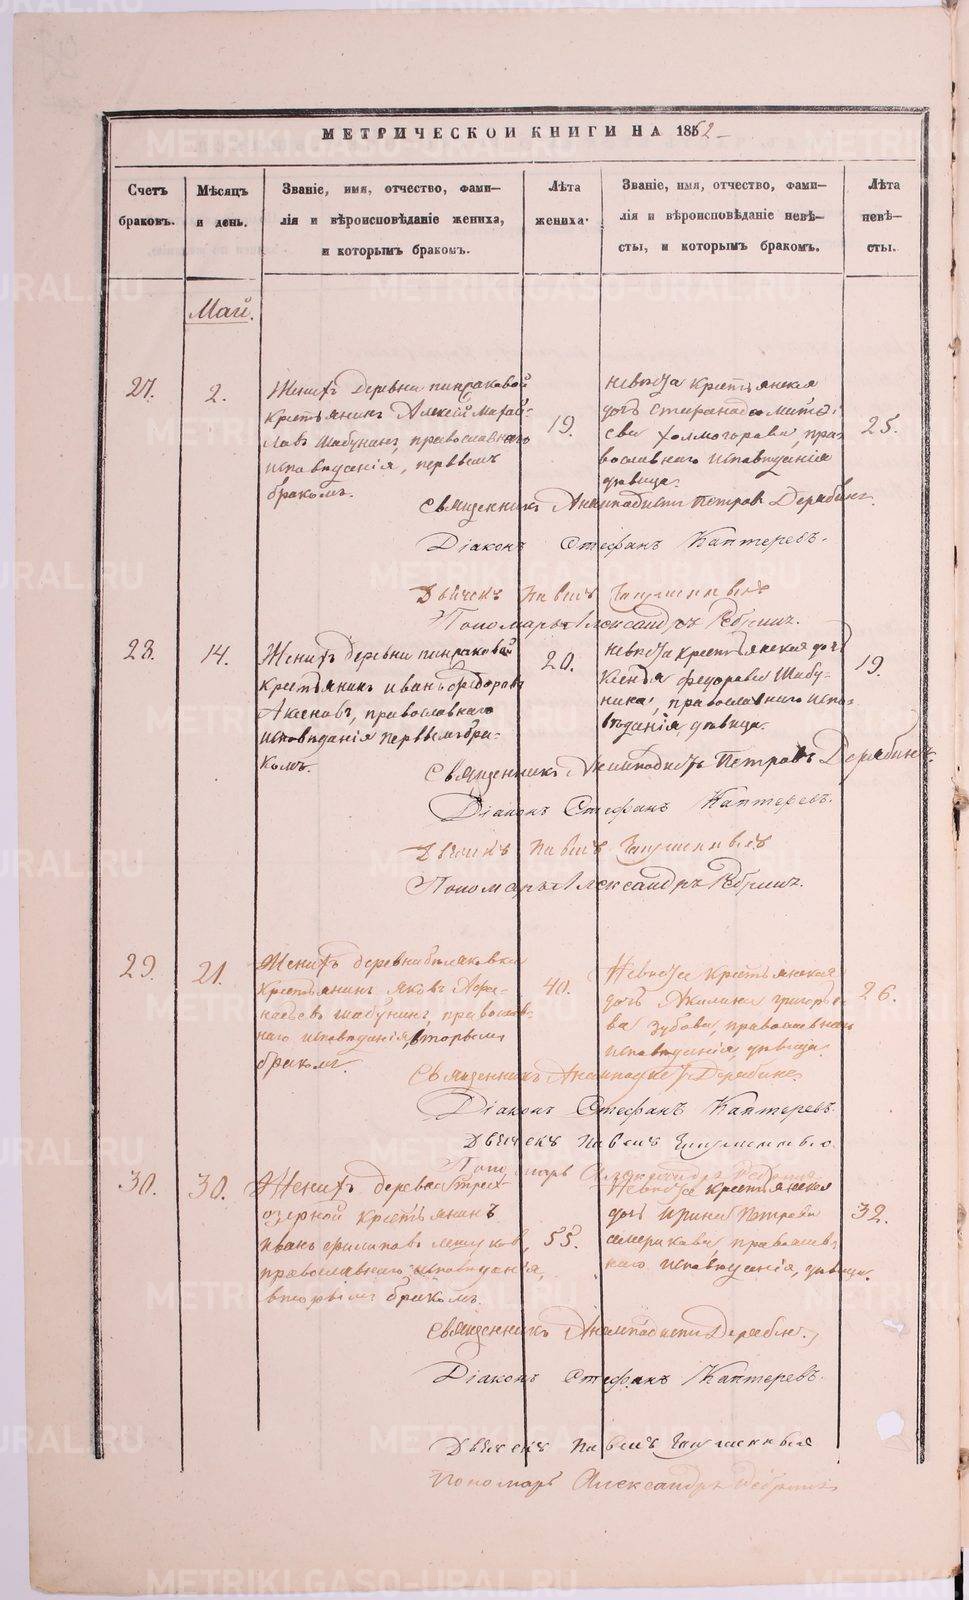 МЕТРИЧЕСКОЙ КНИГИ НА 1852
Счетъ
браковъ.
Мѣсяцъ
и день.
Званіе, имя, отчество, фами-
лія и вѣроисповѣданіе жениха,
и которымъ бракомъ.
Лѣта
жениха.
Званіе, имя, отчество, фами-
лія и вѣроисповѣданіе невѣ-
сты, и которымъ бракомъ.
Лѣта
невѣ-
сты.
Май.
27.
2.
Женихъ деревни
крестьянинъ Алексѣй
Шабунинъ, православнаго
исповѣданія, первымъ
бракомъ.
19.
Невѣста крестьянская
дочь
Холмогорова, пра-
вославнаго исповѣданія
дѣвица.
25.
Священникъ Анемподистъ Петровъ Дерябинъ.
Діаконъ Стефанъ Каптеревъ.
Дьячекъ Павелъ
Пономарь Александръ
28.
14.
Женихъ деревни
крестьянинъ Иванъ Ѳедоровъ
Аксеновъ, православнаго
исповѣданія первымъ бра-
комъ.
20.
Невѣста крестьянская дочь
Ксенія Федорова Шабу-
нина, православнаго испо-
вѣданія, дѣвица.
19.
Священникъ Анемподистъ Петровъ Дерябинъ.
Діаконъ Стефанъ Каптеревъ.
Дьячекъ Павелъ
Пономарь Александръ
29.
21.
Женихъ деревни
крестьянинъ Яковъ Афа-
насьевъ Шабунинъ, православ-
наго исповѣданія, вторымъ
бракомъ.
40.
Невѣста крестьянская
дочь Акилина Григорье-
ва Зубова, православнаго
исповѣданія, дѣвица.
26.
Священникъ Анемподистъ Дерябинъ.
Діаконъ Стефанъ Каптеревъ.
Дьячекъ Павелъ
Пономарь Александръ
30.
30.
Женихъ деревни Трех-
озерной крестьянинъ
Иванъ Филиповъ
православнаго исповѣданія,
вторымъ бракомъ.
55.
Невѣста крестьянская
дочь Ирина Петрова
православ-
наго исповѣданія, дѣвица.
32.
Священникъ Анемподистъ Дерябинъ.
Діаконъ Стефанъ Каптеревъ.
Дьячекъ Павелъ
Пономарь Александръ
METRIKI.GASO-URAL.RU